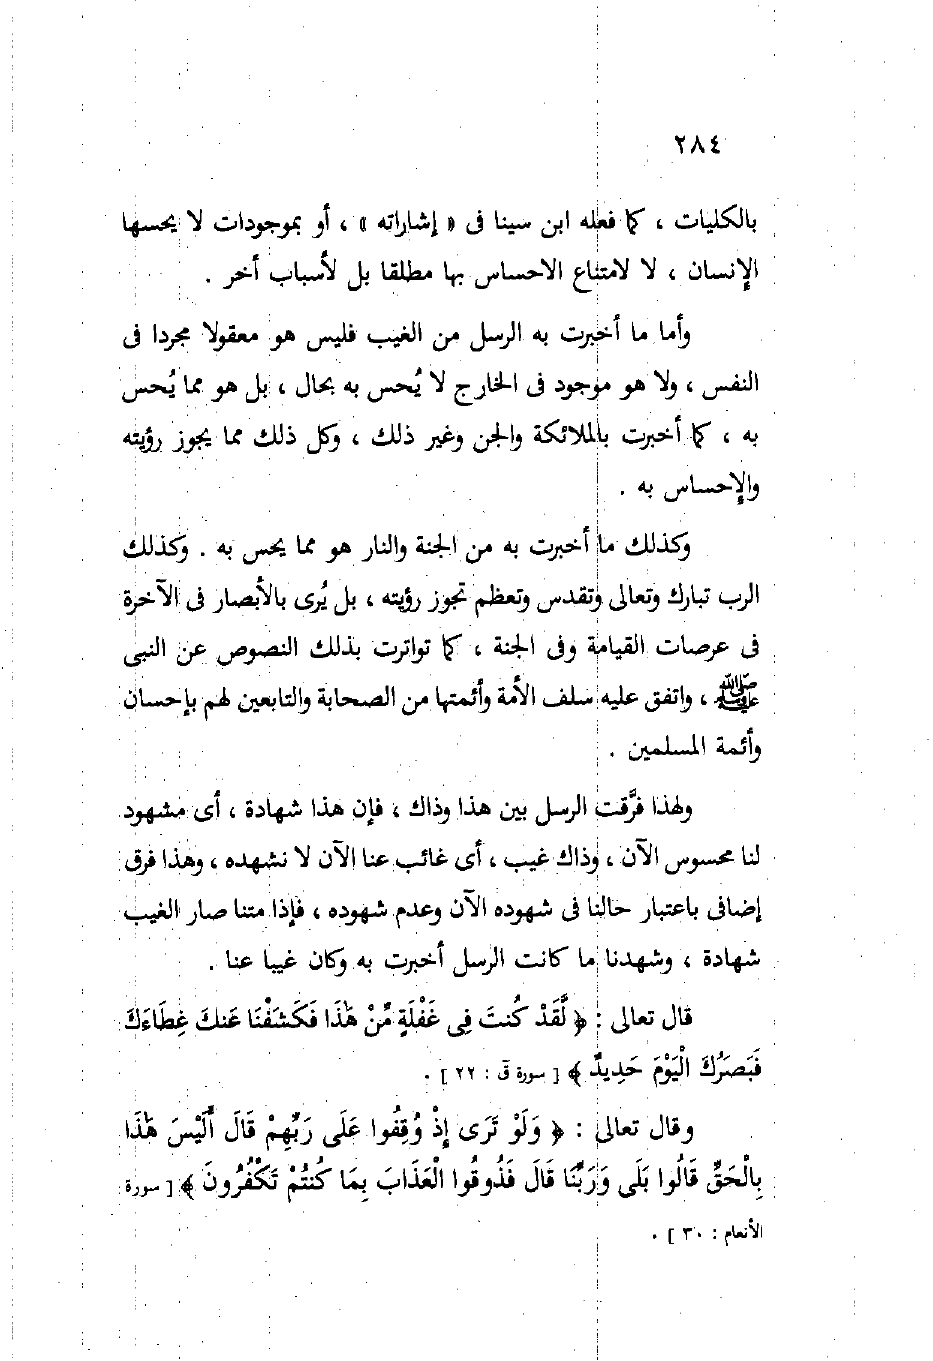 ٢٨٤
بالكليات ، كما فعله ابن سينا فى « إشاراته » ، أو بموجودات لا يحسها
الإنسان ، لا لامتناع الاحساس بها مطلقا بل لأسباب أخر .
وأما ما أخبرت به الرسل من الغيب فليس هو معقولا مجردا فى
النفس ، ولا هو موجود فى الخارج لا يُحس به بحال ، بل هو مما يُحس
به ، كما أخبرت بالملائكة والجن وغير ذلك ، وكل ذلك مما يجوز رؤيته
والإحساس به .
وكذلك ما أخبرت به من الجنة والنار هو مما يحس به . وكذلك
الرب تبارك وتعالى وتقدس وتعظم تجوز رؤيته ، بل يُرى بالأبصار فى الآخرة
فى عرصات القيامة وفى الجنة ، كما تواترت بذلك النصوص عن النبى
ﷺ ، واتفق عليه سلف الأمة وأئمتها من الصحابة والتابعين لهم بإحسان
وأئمة المسلمين .
ولهذا فرَّقت الرسل بين هذا وذاك ، فإن هذا شهادة ، أى مشهود
لنا محسوس الآن ، وذاك غيب ، أى غائب عنا الآن لا نشهده ، وهذا فرق
إضافى باعتبار حالنا فى شهوده الآن وعدم شهوده ، فإذا متنا صار الغيب
شهادة ، وشهدنا ما كانت الرسل أخبرت به وكان غيبا عنا .
قال تعالى : ﴿ لَّقَدْ كُنتَ فِى غَفْلَةٍ مِّنْ هَٰذَا فَكَشَفْنَا عَنكَ غِطَاءَكَ
فَبَصَرُكَ الْيَوْمَ حَدِيدٌ ﴾ [ سورة قۤ : ٢٢ ] .
وقال تعالى : ﴿ وَلَوْ تَرَى إِذْ وُقِفُوا عَلَى رَبِّهِمْ قَالَ أَلَيْسَ هَٰذَا
بِالْحَقِّ قَالُوا بَلَى وَرَبِّنَا قَالَ فَذُوقُوا الْعَذَابَ بِمَا كُنتُمْ تَكْفُرُونَ ﴾ [ سورة
الأنعام : ٣٠ ] .